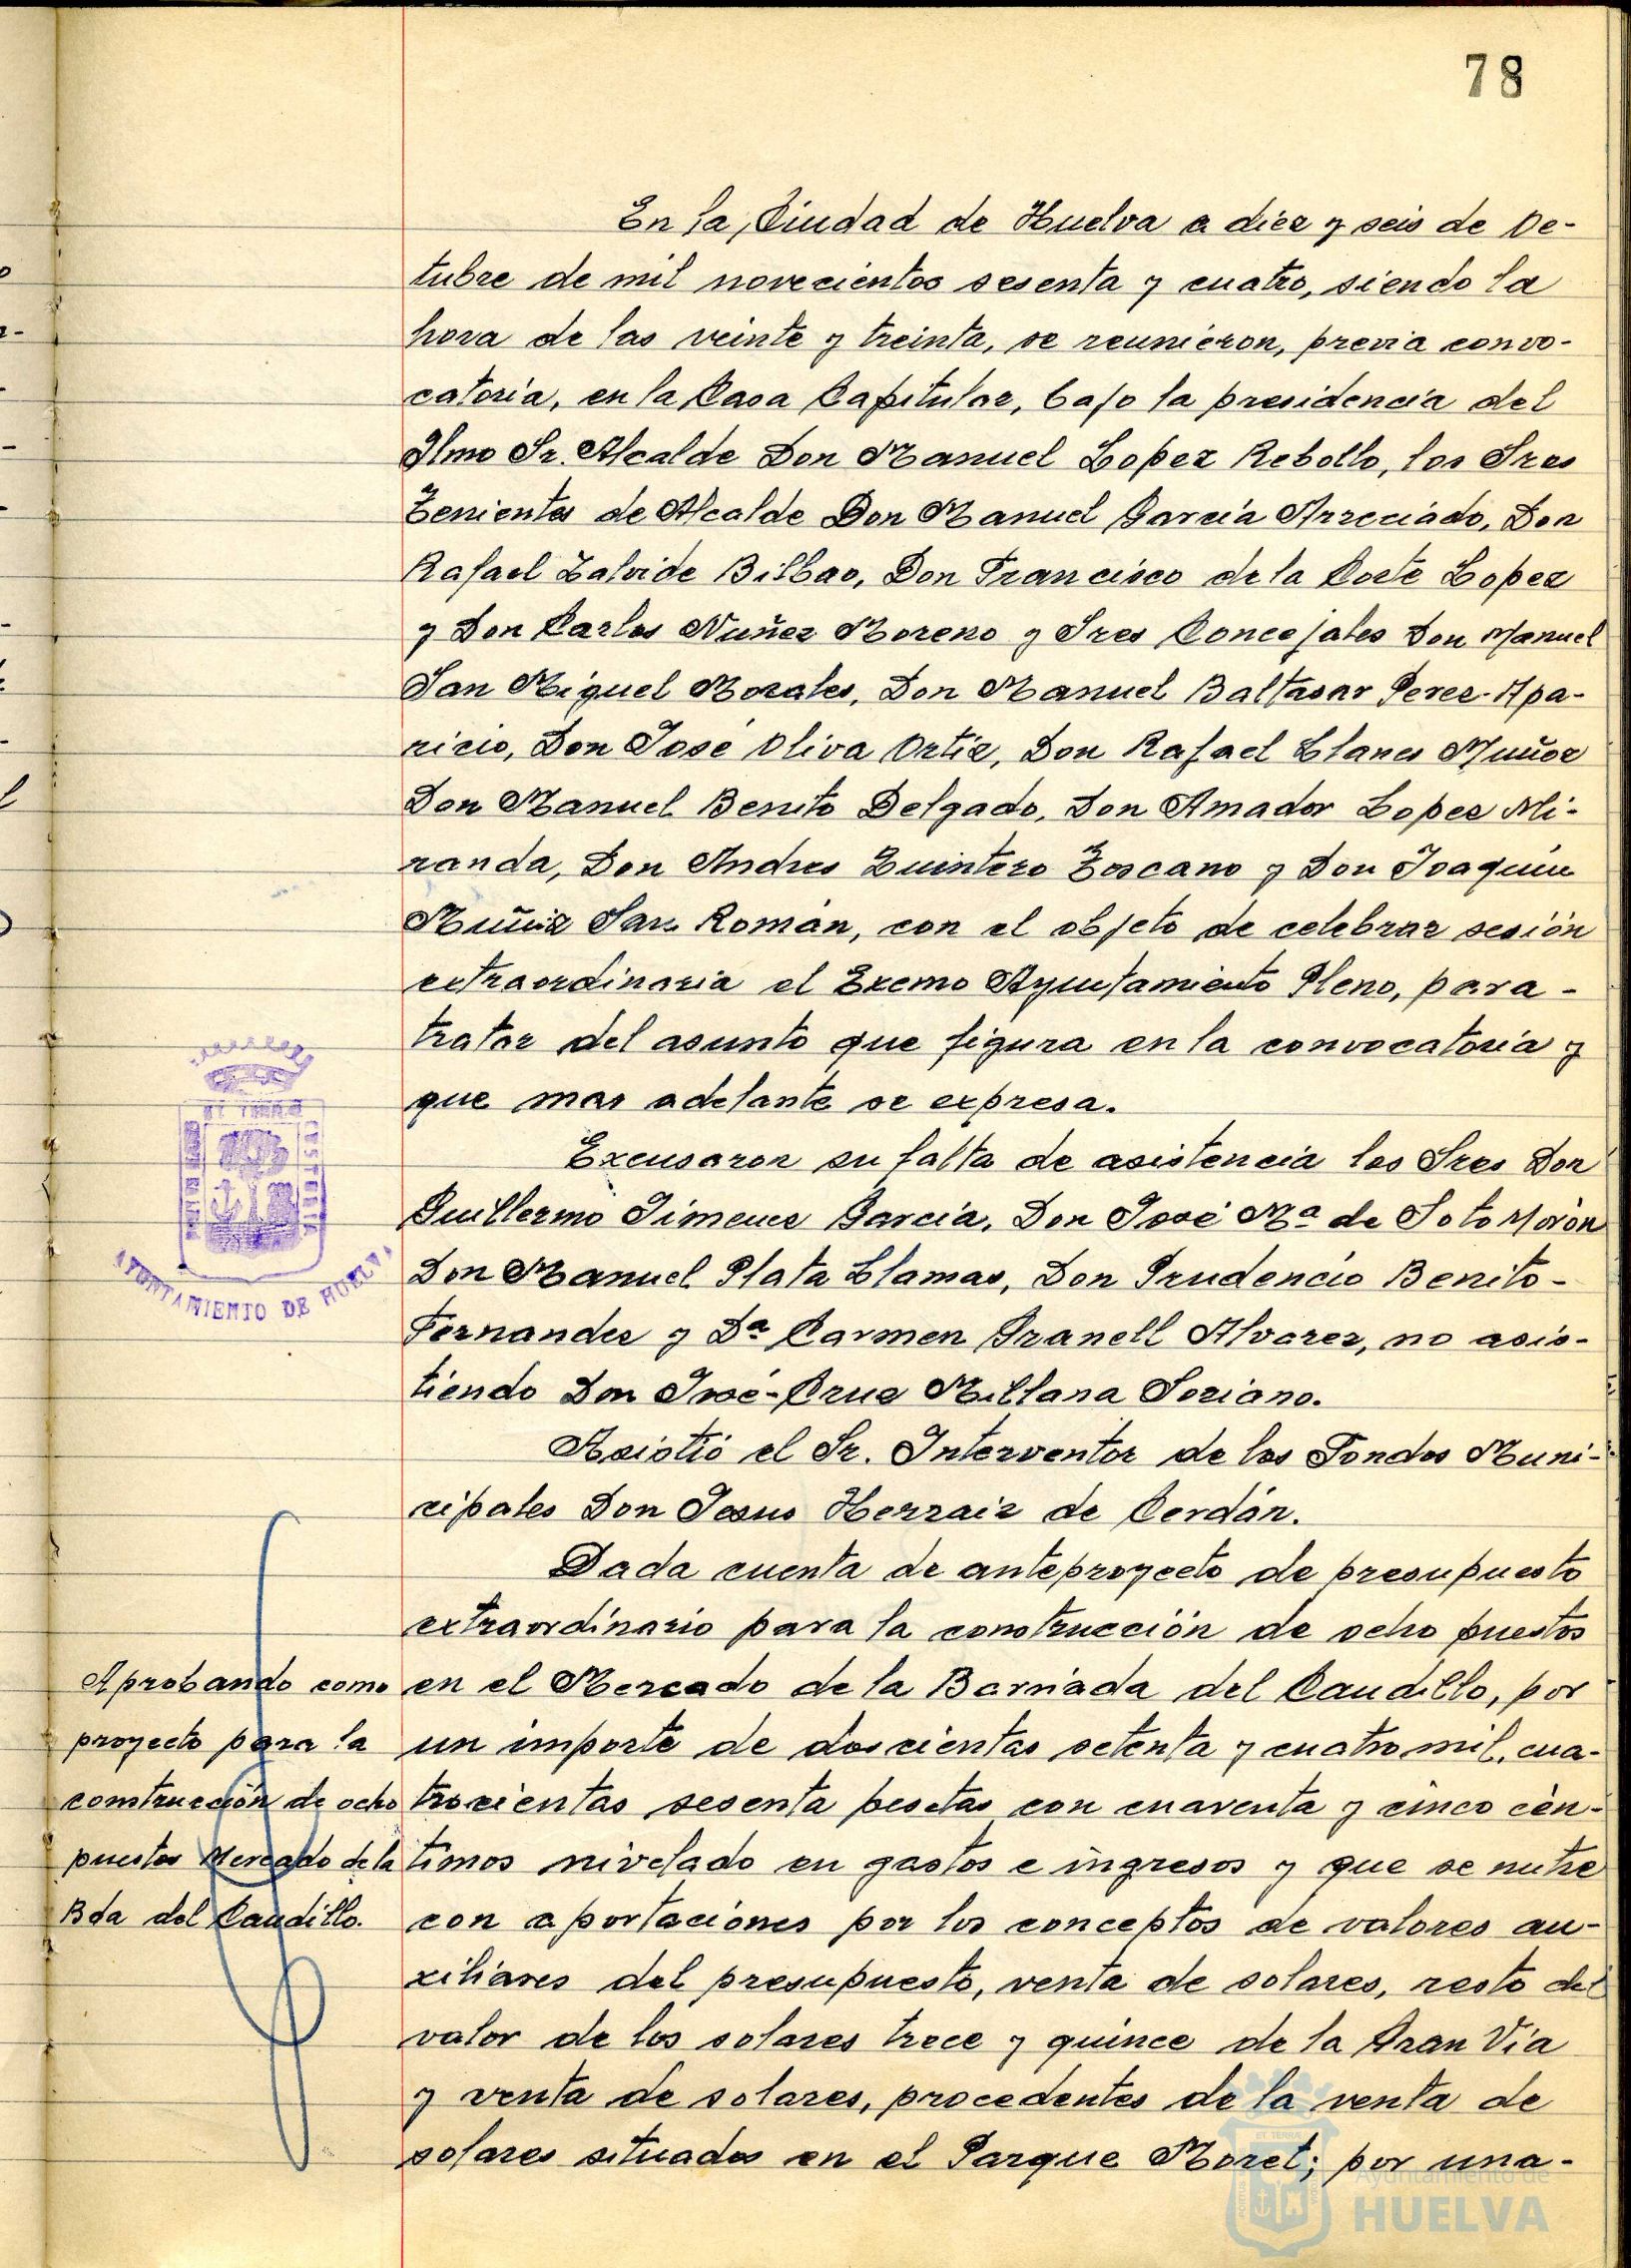 78
En la Ciudad de Huelva a diez y seis de Oc-
tubre de mil novecientos sesenta y cuatro, siendo la
hora de las veinte y treinta, se reunieron, previa convo-
catoria, en la Casa Capitular, bajo la presidencia del
Ilmo Sr. Alcalde Don Manuel Lopez Rebollo, los Sres
Tenientes de Alcalde Don Manuel Garcia Arreciado, Don
Rafael Zalvide Bilbao, Don Francisco de la Corte Lopez
y Don Carlos Nuñez Moreno y Sres Concejales Don Manuel
San Miguel Morales, Don Manuel Baltasar Perez-Apa-
ricio, Don José Oliva Ortiz, Don Rafael Llanes Muñoz
Don Manuel Benito Delgado, Don Amador Lopez Mi-
randa, Don Andres Quintero Toscano y Don Joaquin
Muñiz San Román, con el objeto de celebrar sesión
extraordinaria el Excmo Ayuntamiento Pleno, para-
tratar del asunto que figura en la convocatoria y
que mas adelante se expresa.
Excusaron su falta de asistencia los Sres Don
Guillermo Jimenez Garcia, Don José Mª de Soto Morón
Don Manuel Plata Llamas, Don Prudencio Benito-
Fernandez y Dª Carmen Granell Alvarez, no asis-
tiendo Don José-Cruz Millana Soriano.
Asistió el Sr. Interventor de los Fondos Muni-
cipales Don Jesus Herraiz de Cerdán.
Dada cuenta de anteproyecto de presupuesto
extraordinario para la construcción de ocho puestos
en el Mercado de la Barriada del Caudillo, por
un importe de doscientas setenta y cuatro mil, cua-
trocientas sesenta pesetas con cuarenta y cinco cén-
timos nivelado en gastos e ingresos y que se nutre
con aportaciones por los conceptos de valores au-
xiliares del presupuesto, venta de solares, resto del
valor de los solares trece y quince de la Gran Vía
y venta de solares, procedentes de la venta de
solares situados en el Parque Moret; por una-
AYUNTAMIENTO DE HUELVA
Aprobando como
proyecto para la
construcción de ocho
puestos Mercado de la
Bda del Caudillo.
Ayuntamiento de
HUELVA